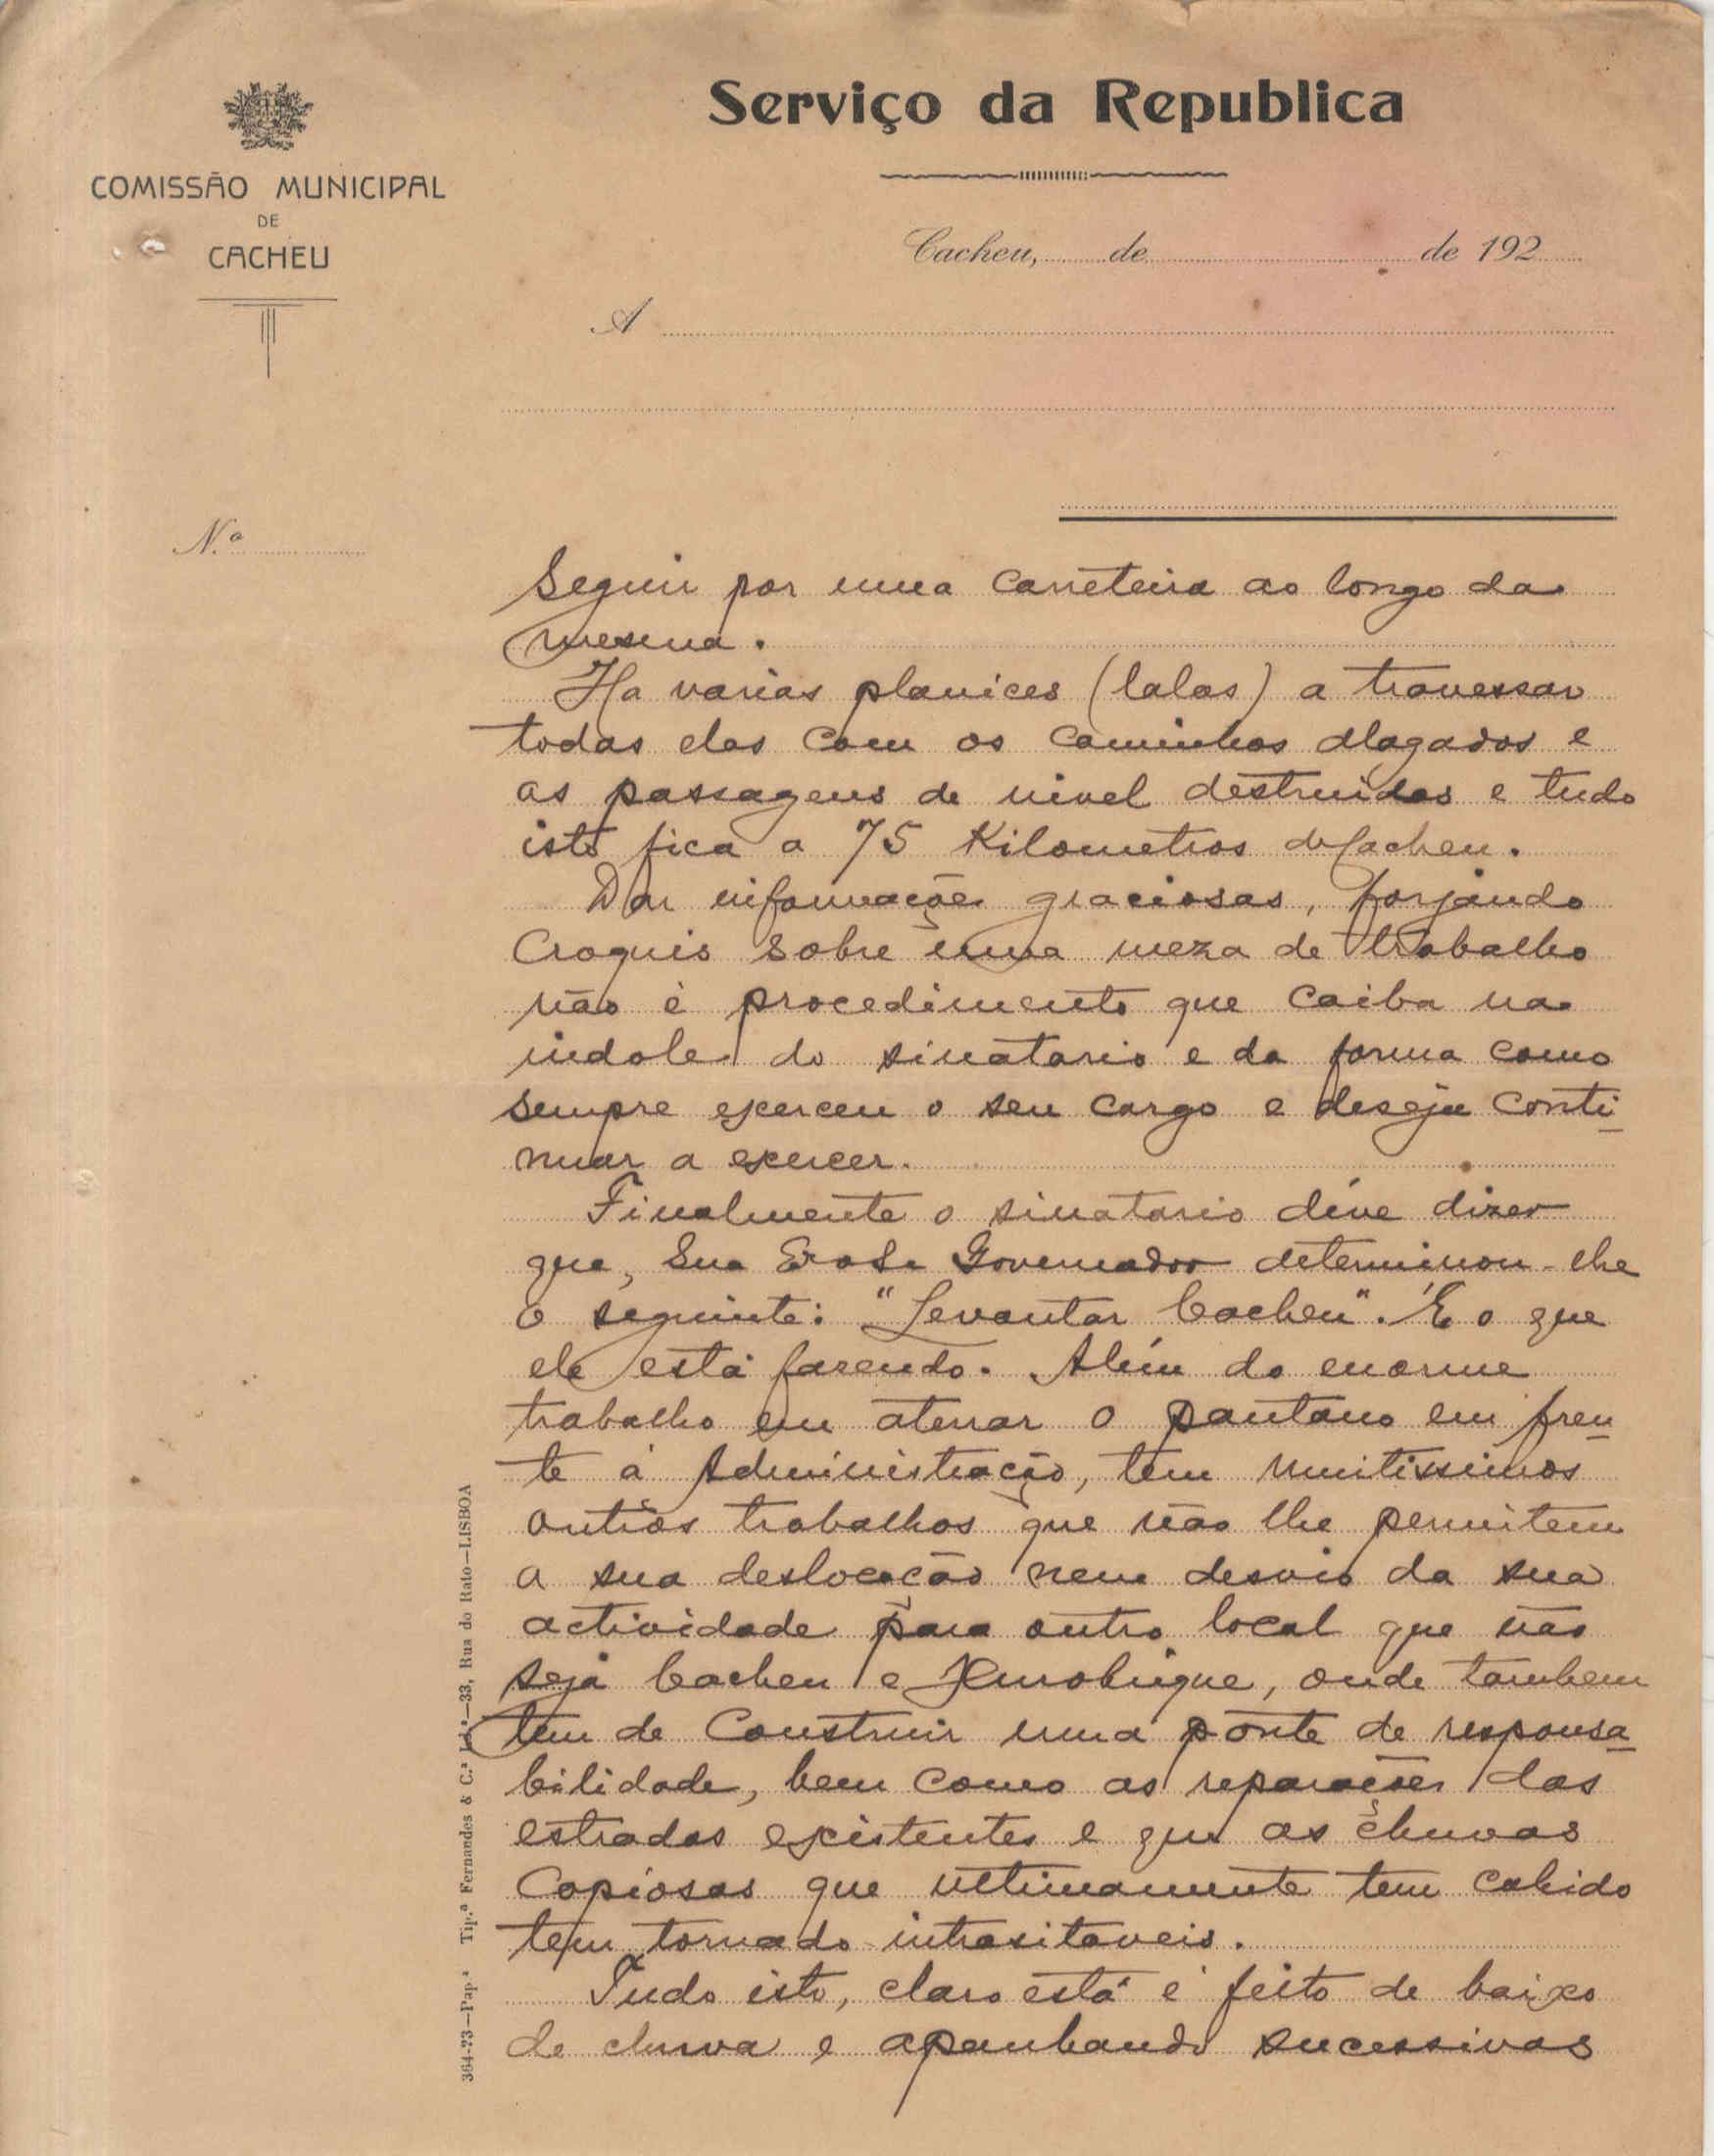 Serviço da Republica
COMISSÃO MUNICIPAL
DE
CACHEU
Cacheu, de de 192
A
N.º
Seguir por uma carreteira ao longo da
mesma.
Ha varias planices (lalas) a travessar
todas elas com os caminhos alagados e
as passagens de nivel destruidas e tudo
isto fica a 75 Kilometros de Cacheu.
Dar informações graciosas, forjando
Croquis sobre uma meza de trabalho
não è procedimento que caiba na
indole do sinatario e da forma como
sempre exerceu o seu cargo e deseja conti
nuar a exercer.
Finalmente o sinatario déve dizer
que, Sua Exª o Governador determinou-lhe
o seguinte: "Levantar Cacheu". É o que
ele está fazendo. Além do enorme
trabalho em aterrar o pantano em fren
te á Administração, tem muitissimos
outros trabalhos que não lhe permitem
a sua deslocação nem desvio da sua
actividade para outro local que não
seja Cacheu e, onde tambem
tem de Construir uma ponte de responsa
bilidade, bem como as reparações das
estradas existentes e que as chuvas
Copiosas que ultimamente tem cahido
tem tornado intrasitaveis.
Tudo isto, claro está é feito de baixo
de chuva e apanhando sucessivas
364-23—Pap.ª Tip.ª Fernandes & C.ª Ld.ª—33, Rua do Rato—LISBOA